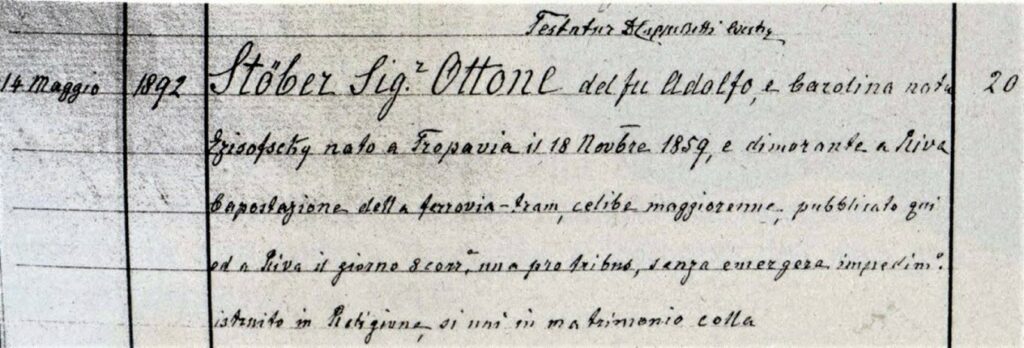 Testatur
14 Maggio 1892 Stöber Sig.r Ottone del fu Adolfo, e Carolina nata 20
nato a Tropavia il 18 Novbre 1859, e dimorante a Riva
Capostazione della ferrovia-tram, celibe maggiorenne, pubblicato qui
ed a Riva il giorno 8 corr.e una pro tribus, senza emergere impedim.o
istruito in Religione, si uni in matrimonio colla